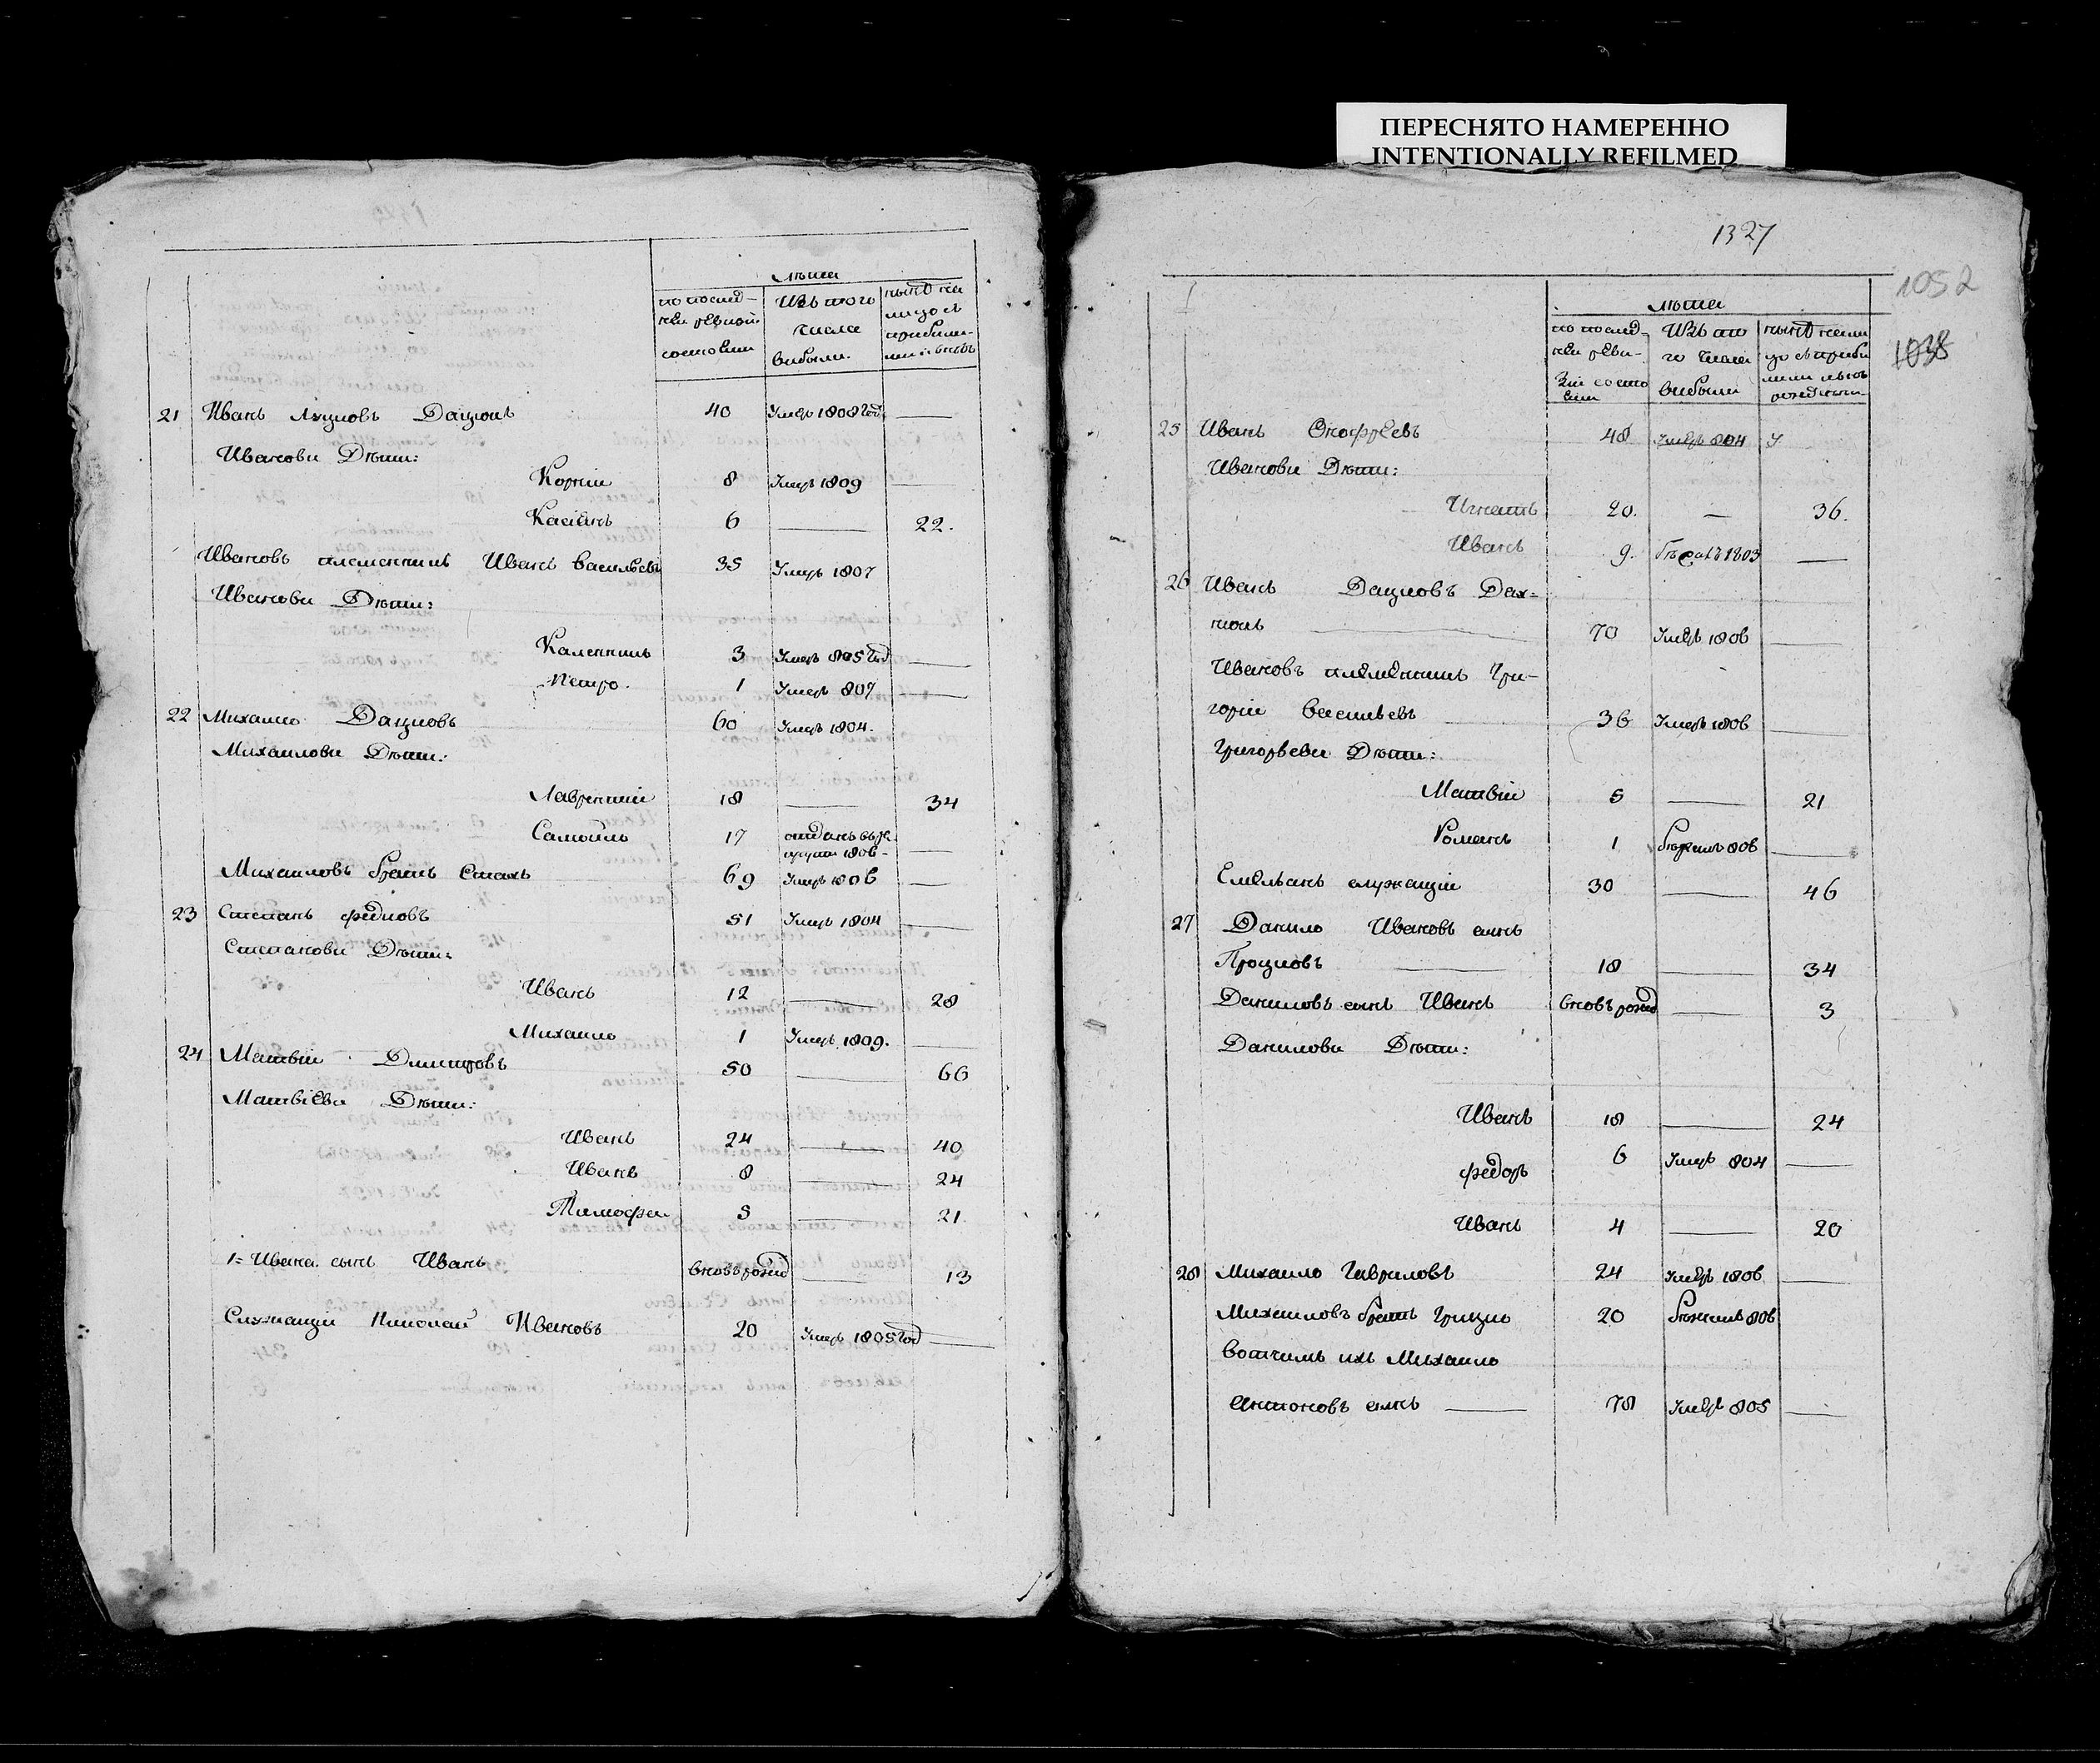 ПЕРЕСНЯТО НАМЕРЕННО
INTENTIONALLY REFILMED
лѣта
по послѣд-
ней ревизіи
состояли
Изъ того
числа
выбыли.
нынѣ на
лицо съ
21 Иванъ Дацюкъ 40 Умеръ 1808 год —
Иванови Дѣти:
Корній 8 Умеръ 1809 —
Касіянъ 6 — 22.
Ивановъ племенникъ Иванъ Васильевъ 35 Умеръ 1807
Иванови Дѣти:
Каленникъ 3 Умеръ 805 год —
Петро. 1 Умеръ 807 —
22 Михайло Дацковъ 60 Умеръ 1804.
Михайлови Дѣти:
Лаврентій 18 — 34
Самойло 17 отданъ въ ре
круты 1806 - —
Михайловъ братъ Стахъ 69 Умеръ 1806 —
23 Степанъ Федковъ 51 Умеръ 1804 —
Степанови Дѣти:
Иванъ 12 — 28
Михайло 1 Умеръ 1809. —
24 Матвій Дмитровъ 50 — 66
Матвіеви Дѣти:
Иванъ 24 — 40
Иванъ 8 — 24
Тимофей 5 — 21
1= Ивана сынъ Иванъ вновь рожд — 13
Служащій Николай Ивановъ 20 Умеръ 1805 год —
1327
1052
1038
лѣта
по послѣд-
ней реви-
зіи состо
яли
Изъ то
го числа
выбыли
нынѣ нали
цо съ прибы
25 Иванъ Онофреевъ 48 Умеръ 804
Иванови Дѣти:
Игнатъ 20. — 36.
Иванъ 9. бѣжалъ 1803 —
26 Иванъ Дацковъ Дах=
нюкъ — 70 Умеръ 1806 —
Ивановъ племенникъ Гри-
горій Васильевъ 36 Умеръ 1806 —
Григорьеви Дѣти:
Матвій 5 — 21
Романъ 1 бѣжалъ 806 —
Емельянъ служащій 30 — 46
27 Данило Ивановъ сынъ
Процковъ — 18 — 34
Даниловъ сынъ Иванъ вновь рожд — 3
Данилови Дѣти:
Иванъ 18 — 24
Федоръ 6 Умеръ 804 —
Иванъ 4 — 20
28 Михайло Гавриловъ 24 Умеръ 1806 —
Михайловъ братъ Грицко 20 бѣжалъ 806
Вотчимъ ихъ Михайло
Антоновъ сынъ — 78 Умеръ 805 —